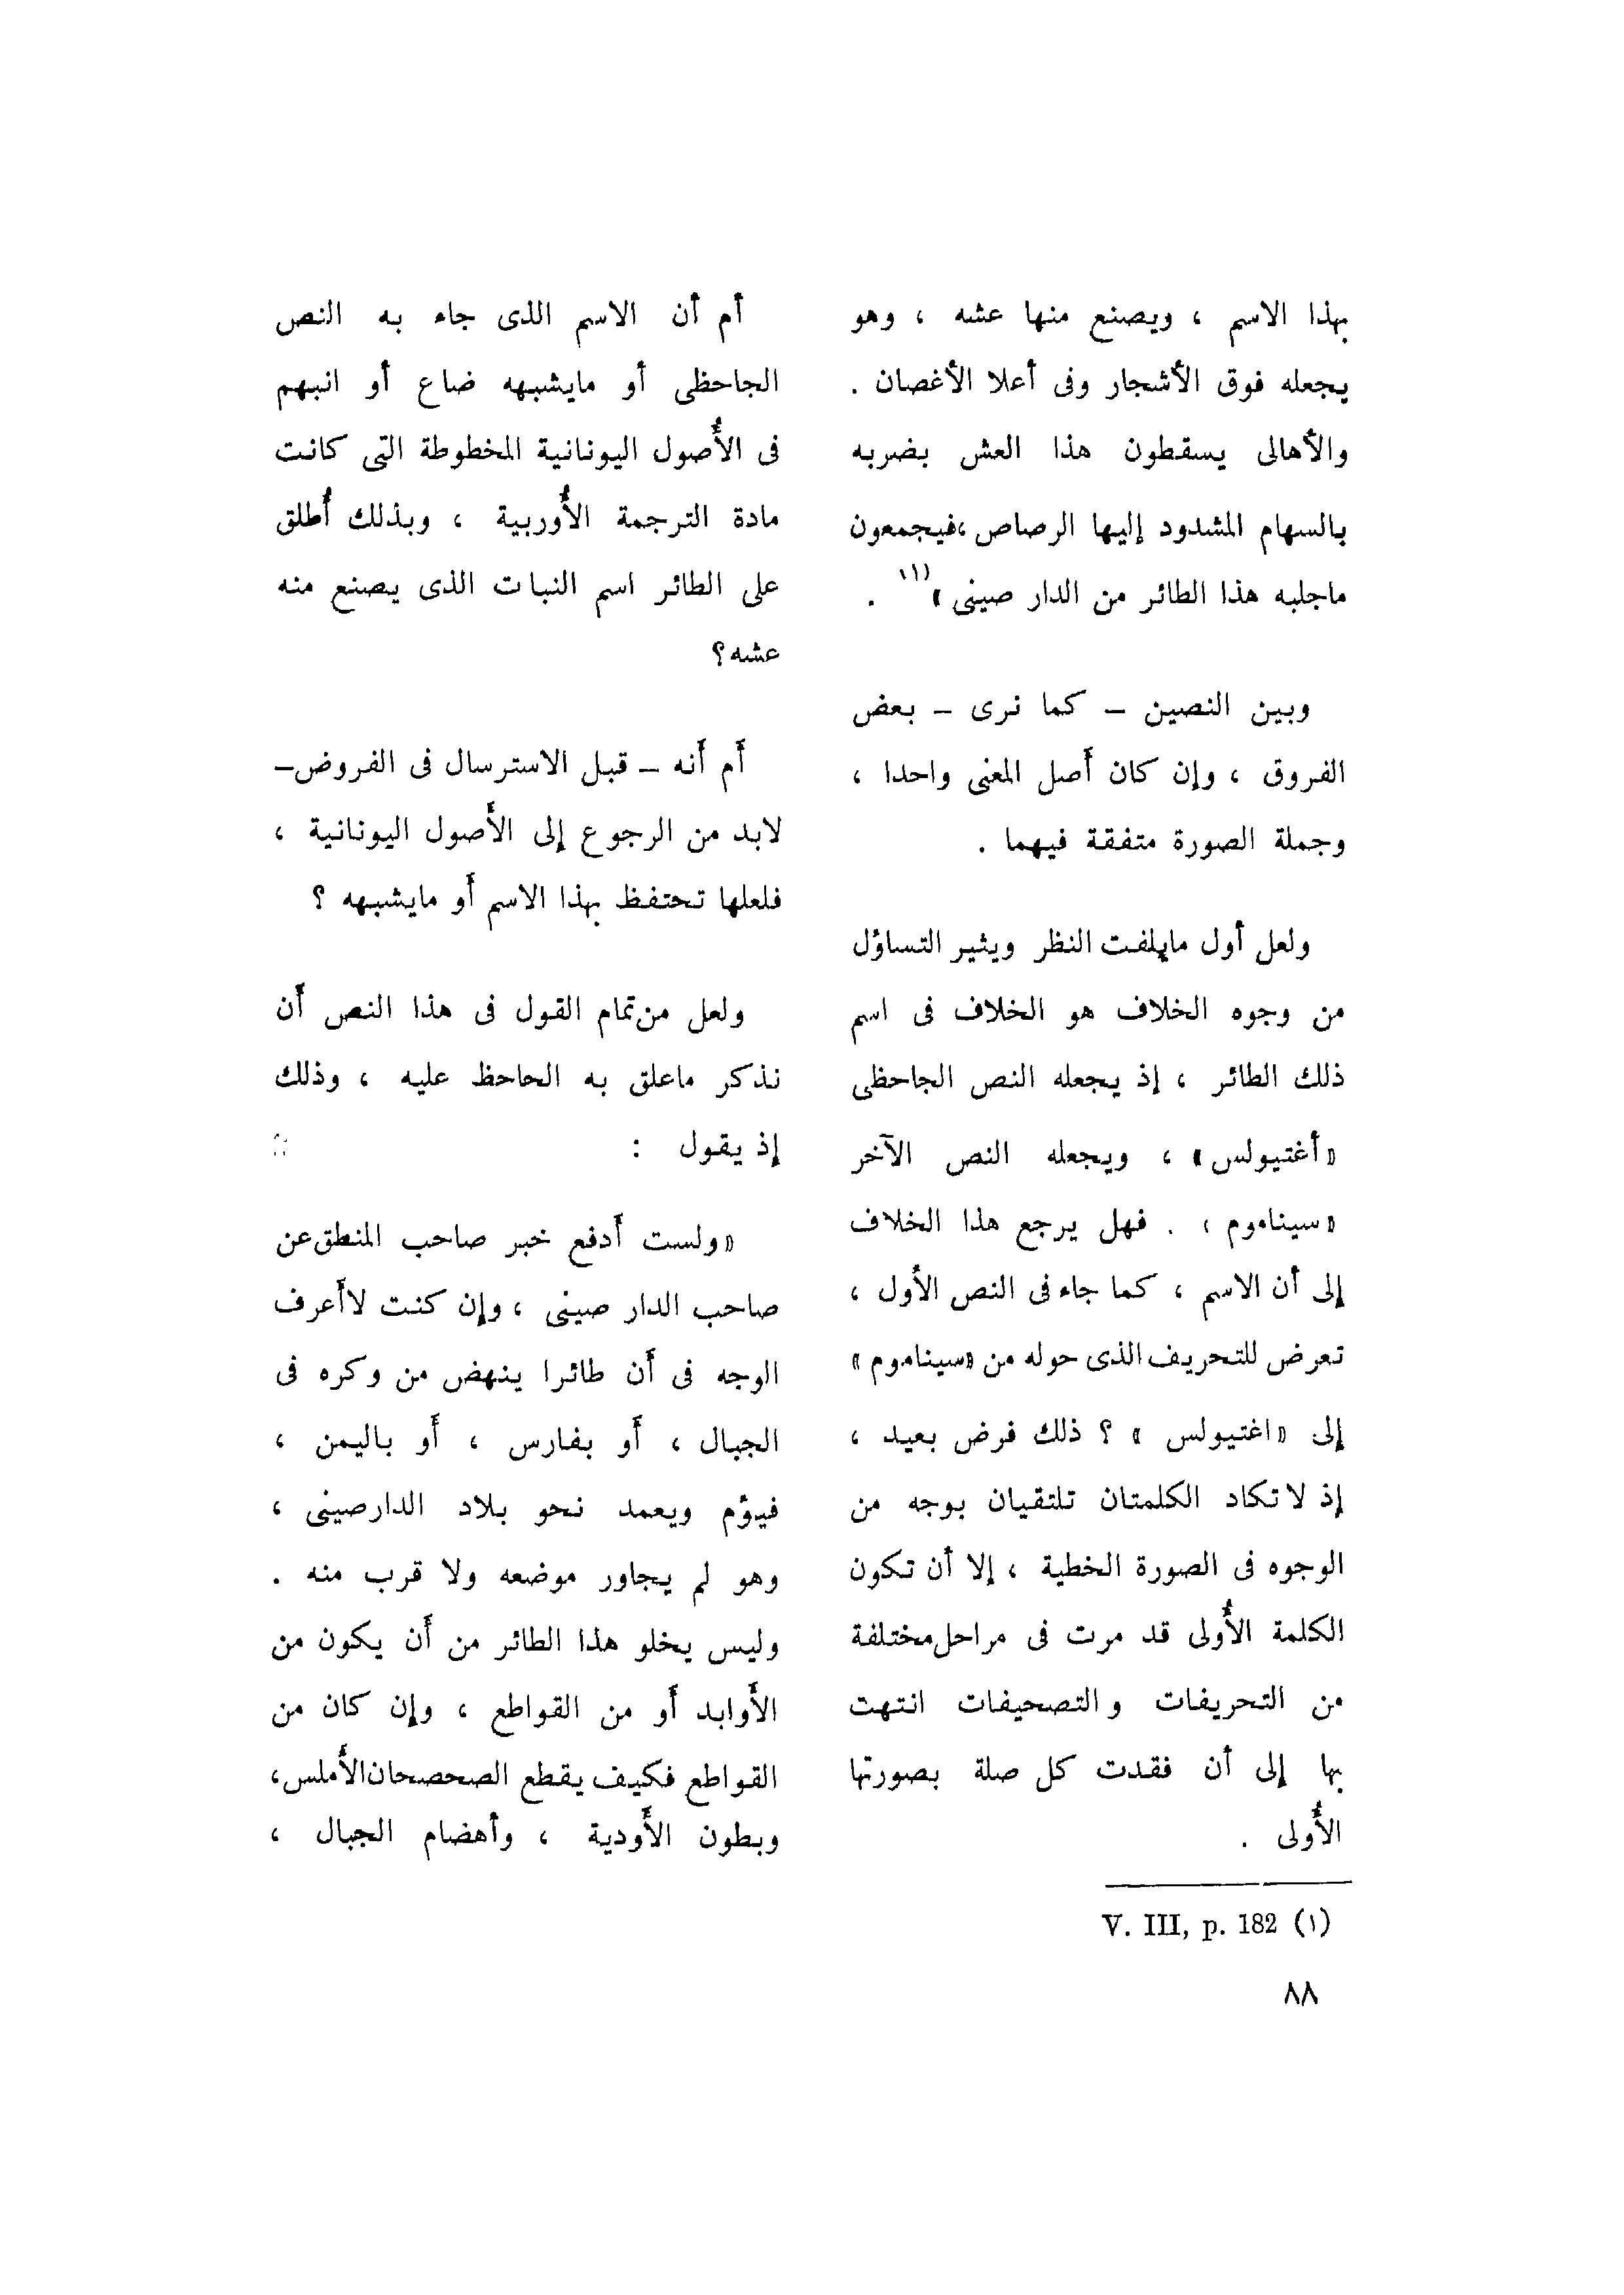 بهذا الاسم ، ويصنع منها عشه ، وهو
يجعله فوق الأشجار وفى أعلا الأغصان .
والأهالى يسقطون هذا العش بضربه
بالسهام المشدود إليها الرصاص ،فيجمعون
ماجلبه هذا الطائر من الدار صينى » (١) .
وبين النصين – كما نرى – بعض
الفروق ، وإن كان أصل المعنى واحدا ،
وجملة الصورة متفقة فيهما .
ولعل أول مايلفت النظر ويثير التساؤل
من وجوه الخلاف هو الخلاف فى اسم
ذلك الطائر ، إذ يجعله النص الجاحظى
« أغتيولس » ، ويجعله النص الآخر
« سيناموم ، . فهل يرجع هذا الخلاف
إلى أن الاسم ، كما جاء فى النص الأول ،
تعرض للتحريف الذى حوله من «سيناموم »
إلى « اغتيولس » ؟ ذلك فرض بعيد ،
إذ لا تكاد الكلمتان تلتقيان بوجه من
الوجوه فى الصورة الخطية ، إلا أن تكون
الكلمة الأُولى قد مرت فى مراحل مختلفة
من التحريفات والتصحيفات انتهت
بها إلى أن فقدت كل صلة بصورتها
الأُولى .
(١) V. III, p. 182
٨٨
أم أن الاسم الذى جاء به النص
الجاحظى أو مايشبهه ضاع أو انبهم
فى الأُصول اليونانية المخطوطة التى كانت
مادة الترجمة الأُوربية ، وبذلك أُطلق
على الطائر اسم النبات الذى يصنع منه
عشه ؟
أَم أَنه – قبل الاسترسال فى الفروض–
لابد من الرجوع إلى الأَصول اليونانية ،
فلعلها تحتفظ بهذا الاسم أَو مايشبهه ؟
ولعل من تمام القول فى هذا النص أَن
نذكر ماعلق به الحاحظ عليه ، وذلك
إذ يقول :
« ولست أَدفع خبر صاحب المنطق عن
صاحب الدار صينى ، وإن كنت لاأَعرف
الوجه فى أَن طائرا ينهض من وكره فى
الجبال ، أَو بفارس ، أَو باليمن ،
فيؤم ويعمد نحو بلاد الدارصينى ،
وهو لم يجاور موضعه ولا قرب منه .
وليس يخلو هذا الطائر من أَن يكون من
الأَوابد أَو من القواطع ، وإن كان من
القواطع فكيف يقطع الصحصحان الأَملس،
وبطون الأَودية ، وأهضام الجبال ،